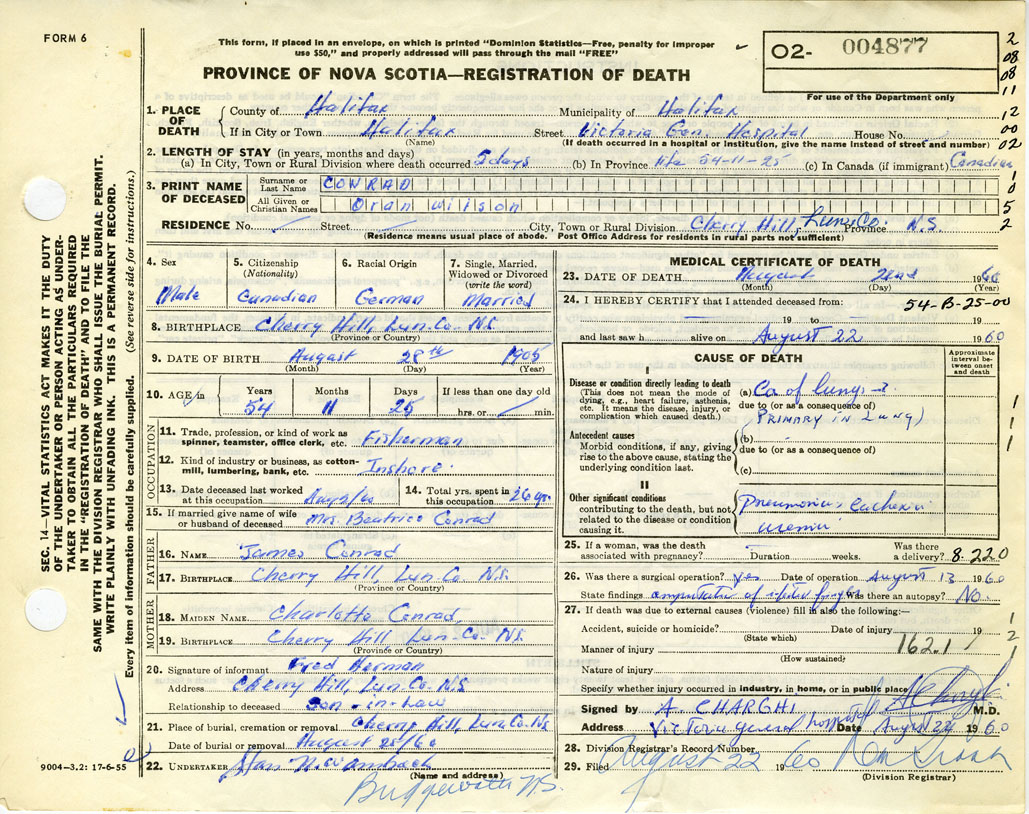 FORM 6
This form, if placed in an envelope, on which is printed "Dominion Statistics—Free, penalty for improper
use $50," and properly addressed will pass through the mail "FREE"
PROVINCE OF NOVA SCOTIA—REGISTRATION OF DEATH
O2- 004877
For use of the Department only
2
08
08
11
12
00
02
1
0
5
2
SEC. 14—VITAL STATISTICS ACT MAKES IT THE DUTY
OF THE UNDERTAKER OR PERSON ACTING AS UNDER-
TAKER TO OBTAIN ALL THE PARTICULARS REQUIRED
IN THE "REGISTRATION OF DEATH" AND TO FILE THE
SAME WITH THE DIVISION REGISTRAR WHO SHALL ISSUE THE BURIAL PERMIT.
WRITE PLAINLY WITH UNFADING INK. THIS IS A PERMANENT RECORD.
Every item of information should be carefully supplied. (See reverse side for instructions.)
1. PLACE OF DEATH
County of Halifax Municipality of Halifax
If in City or Town Halifax Street Victoria Gen. Hospital House No.
(Name) (If death occurred in a hospital or Institution, give the name instead of street and number)
2. LENGTH OF STAY (in years, months and days)
(a) In City, Town or Rural Division where death occurred 5 days (b) In Province life 54-11-25 (c) In Canada (if immigrant) Canadian
3. PRINT NAME OF DECEASED
Surname or Last Name CONRAD
All Given or Christian Names Oran wilson
RESIDENCE No. Street City, Town or Rural Division Cherry Hill, Lun. Co. Province N.S.
(Residence means usual place of abode. Post Office Address for residents in rural parts not sufficient)
4. Sex
Male
5. Citizenship
(Nationality)
Canadian
6. Racial Origin
German
7. Single, Married,
Widowed or Divorced
(write the word)
Married
8. BIRTHPLACE Cherry Hill, Lun. Co. N.S.
(Province or Country)
9. DATE OF BIRTH August 28th 1905
(Month) (Day) (Year)
10. AGE in Years Months Days If less than one day old
54 11 25 hrs. or min.
OCCUPATION
11. Trade, profession, or kind of work as
spinner, teamster, office clerk, etc. Fisherman
12. Kind of industry or business, as cotton-
mill, lumbering, bank, etc. Inshore.
13. Date deceased last worked
at this occupation
14. Total yrs. spent in
this occupation 26 yrs.
15. If married give name of wife
or husband of deceased Mrs. Beatrice Conrad
FATHER
16. NAME James Conrad
17. BIRTHPLACE Cherry Hill, Lun. Co. N.S.
(Province or Country)
MOTHER
18. MAIDEN NAME Charlotte Conrad
19. BIRTHPLACE Cherry Hill Lun. Co. N.S.
(Province or Country)
20. Signature of informant Fred Herman
Address Cherry Hill, Lun. Co. N.S.
Relationship to deceased Son-in-law
21. Place of burial, cremation or removal Cherry Hill, Lun. Co. N.S.
Date of burial or removal August 25/60
22. UNDERTAKER
(Name and address)
Bridgewater N.S.
9004—3.2: 17-6-55
MEDICAL CERTIFICATE OF DEATH
23. DATE OF DEATH August 22nd 1960
(Month) (Day) (Year)
24. I HEREBY CERTIFY that I attended deceased from:
54-B-25-00
19 to 19
and last saw h alive on August 22 1960
CAUSE OF DEATH
Approximate
interval be-
tween onset
and death
I
Disease or condition directly leading to death
(This does not mean the mode of
dying, e.g., heart failure, asthenia,
etc. It means the disease, injury, or
complication which caused death.)
(a) Ca of lung -?
due to (or as a consequence of)
PRIMARY IN LUNG)
Antecedent causes
Morbid conditions, if any, giving
rise to the above cause, stating the
underlying condition last.
(b)
due to (or as a consequence of)
(c)
1
1
1
II
Other significant conditions
contributing to the death, but not
related to the disease or condition
causing it.
25. If a woman, was the death
associated with pregnancy? Duration weeks. Was there
a delivery? 8.220
26. Was there a surgical operation? Yes Date of operation August 13 1960
State findings amputation of Was there an autopsy? No.
27. If death was due to external causes (violence) fill in also the following:—
Accident, suicide or homicide? Date of injury 19
(State which)
Manner of injury 162.1
(How sustained)
1
2
1
Nature of injury
Specify whether injury occurred in industry, in home, or in public place
Signed by A. CHARGHI M.D.
Address Victoria general hospital Date Aug 22 1960
28. Division Registrar's Record Number
29. Filed August 22 1960
(Division Registrar)